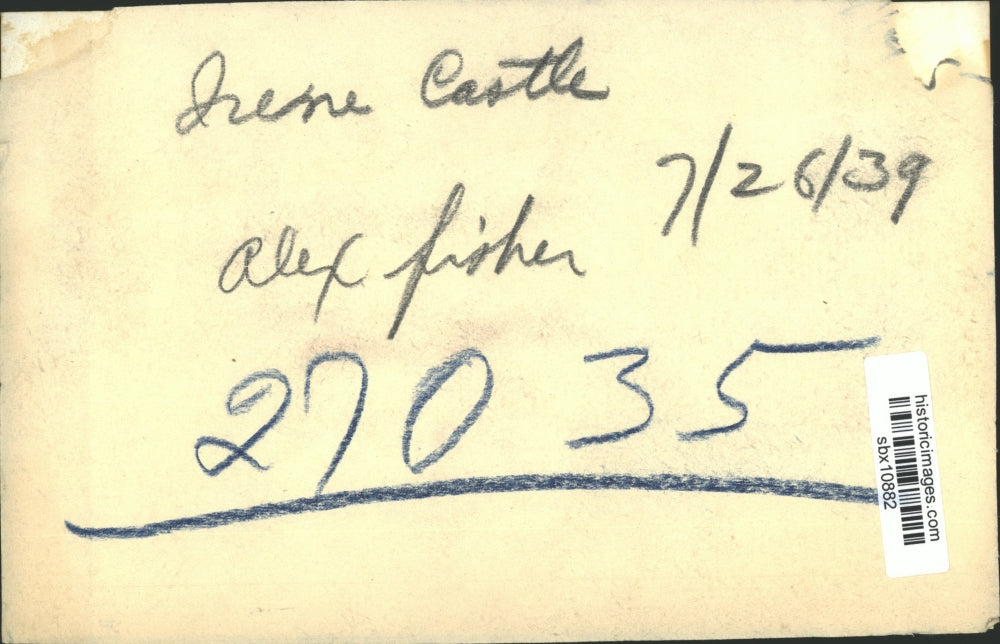 Irene Castle
7/26/39
Alex fisher
27035
historicimages.com
sbx10882